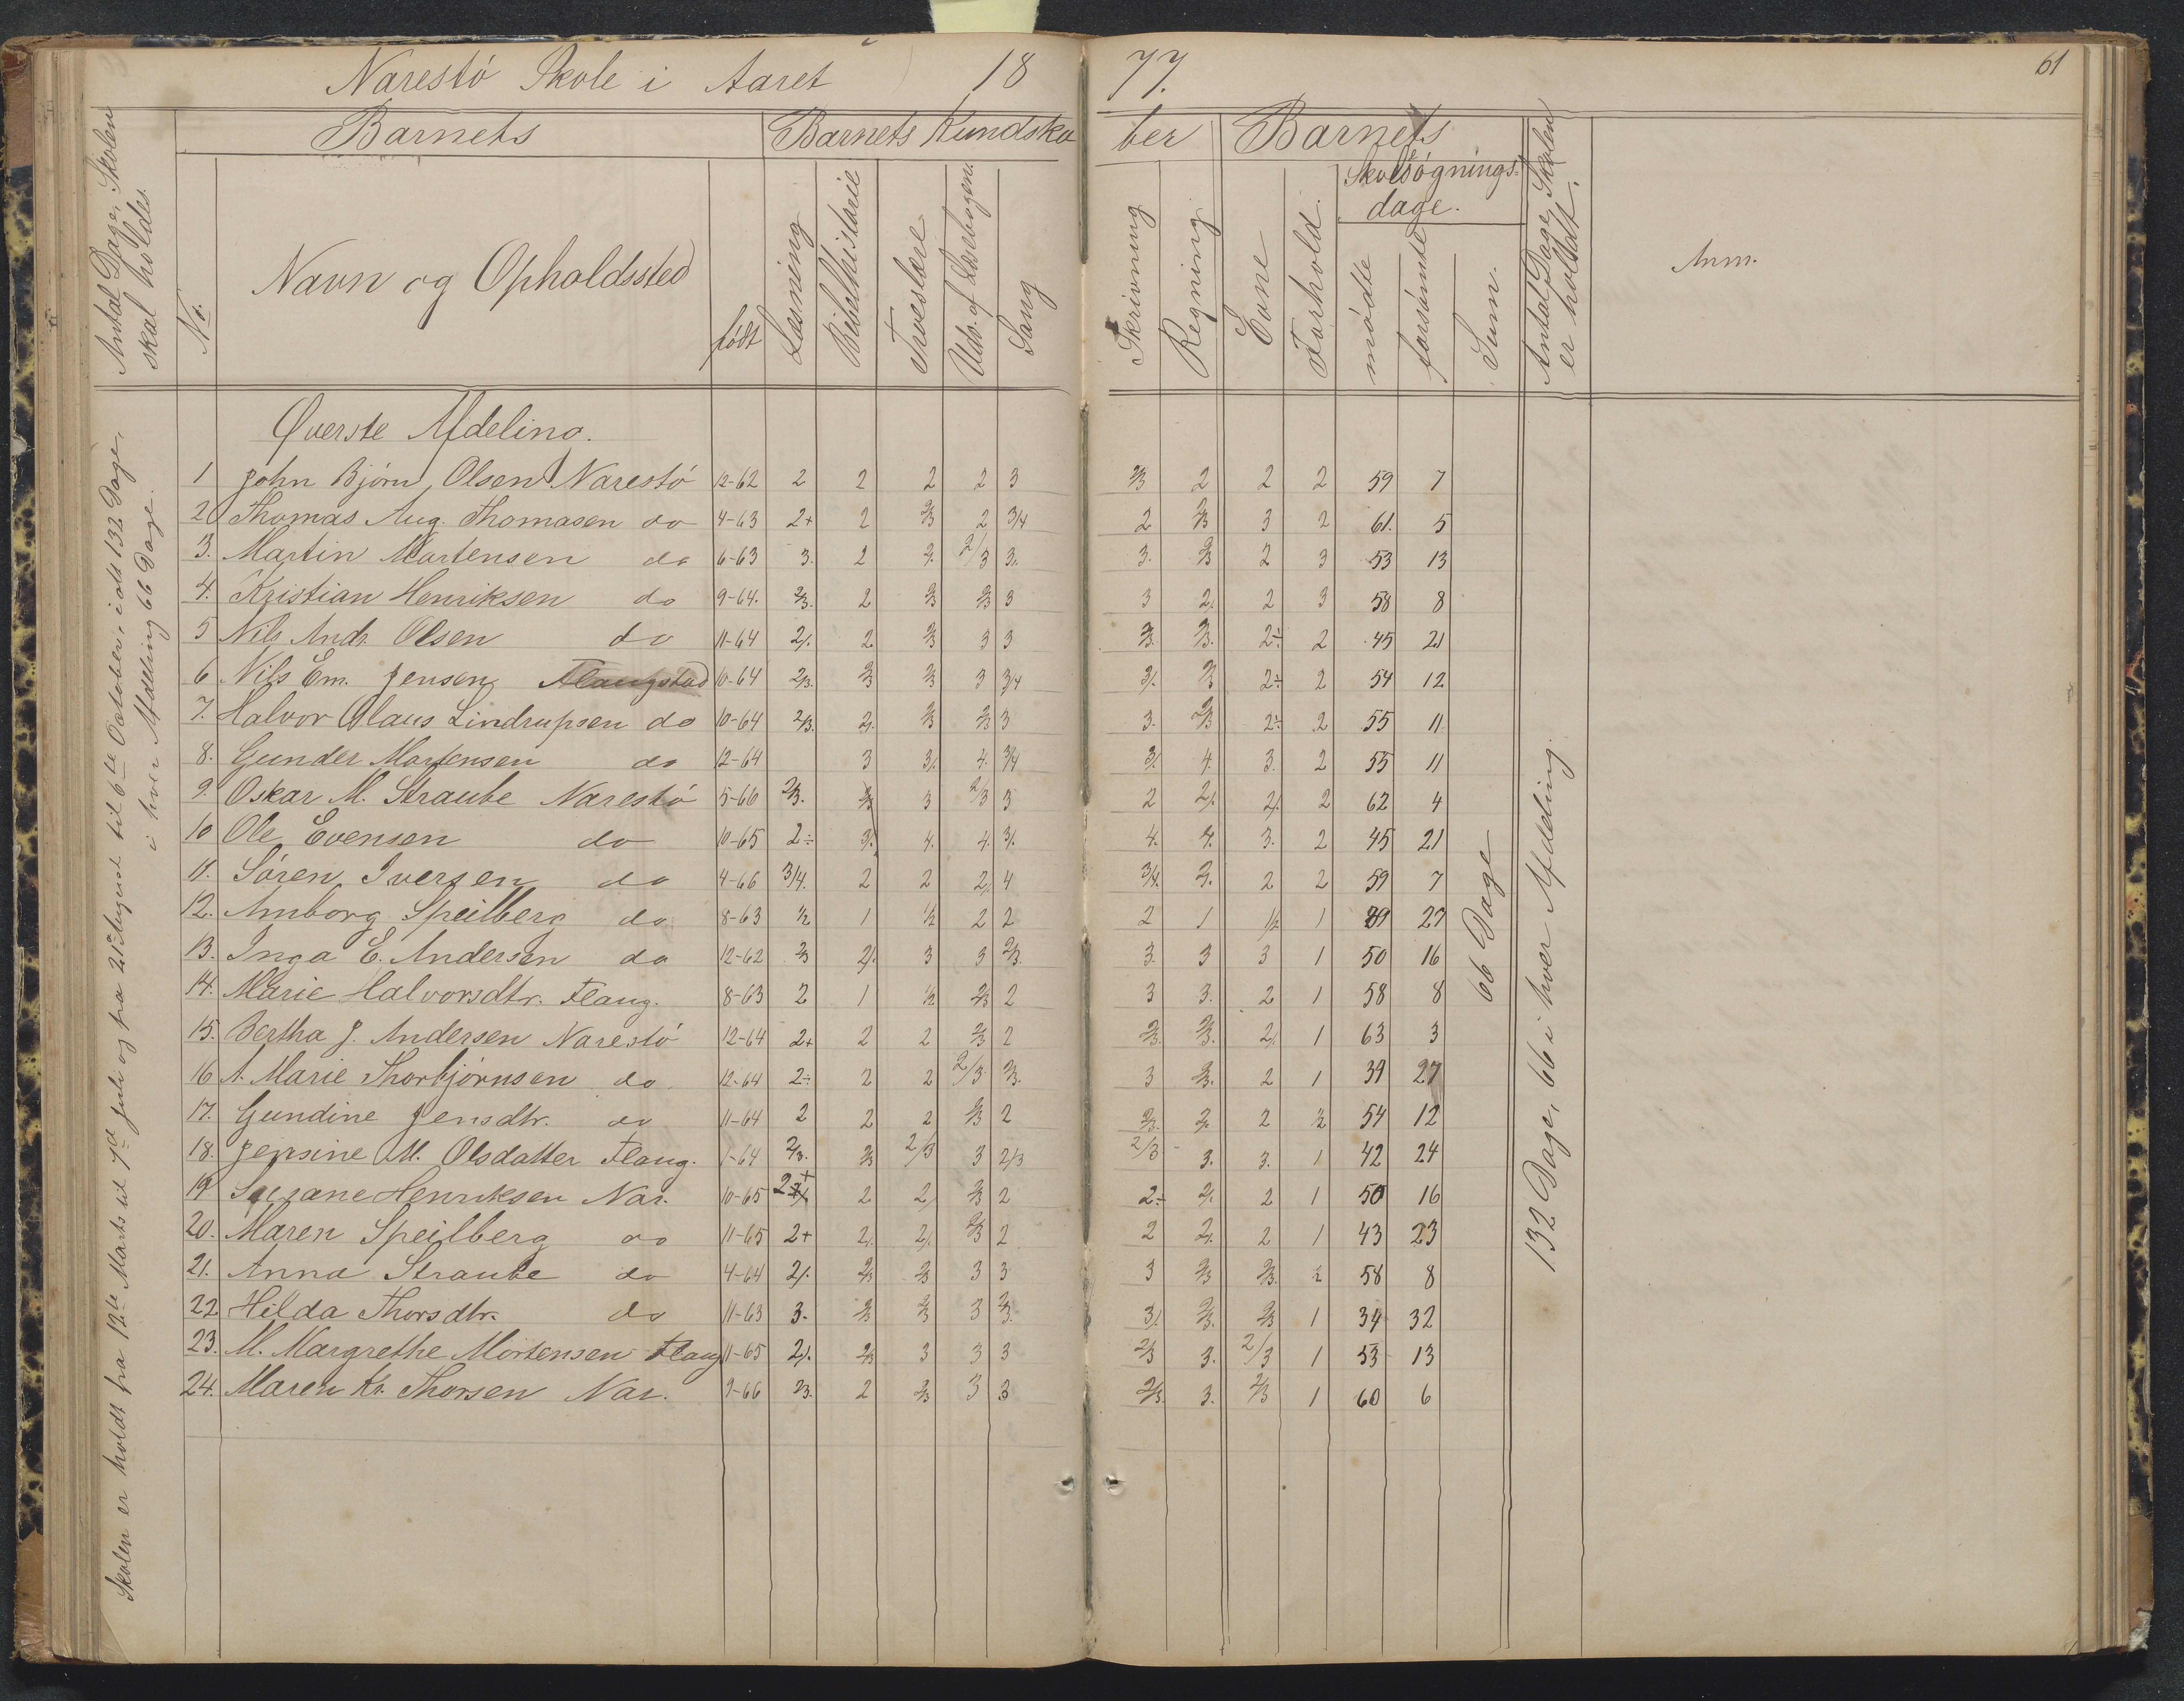 Narestö Skole i Aaret 18 77. 61
Antal Dage, Skolen skal holdes.
Barnets
Barnets Kundskaber
Barnets
No.
Navn og Opholdssted
födt
Læsning
Bibelhistorie
Troeslære
Udv. af Læsebogen.
Sang
Skrivning
Regning
Evne
Forhold.
Skolesögnings-
dage.
mödte
forsömte
Sum.
Antal Dage, Skolen er holdt.
Anm.
Skolen er holdt fra 12te Marts til 7de Juli og fra 21de August til 6te October, i alt 132 Dage,
i hver Afdeling 66 Dage.
Øverste Afdeling.
1 John Björn Olsen Narestö 12-62 2 2 2 2 3 2/3 2 2 2 59 7
2 Thomas Aug. Thomasen do 4-63 2+ 2 2/3 2 3/4 2 2/3 3 2 61. 5
3. Martin Mortensen do 6-63 3. 2 2. 2/3 3. 3. 2/3 2 3 53 13
4. Kristian Henriksen do 9-64. 2/3. 2 2/3 2/3 3 3 2. 2 3 58 8
5 Nils Andr. Olsen do 11-64 2. 2 2/3 3 3 2/3. 2/3. 2÷ 2 45 21
6 Nils Em. Jensen Flangstad 10-64 2/3. 2/3 2/3 3 3/4 3. 2/3 2÷ 2 54 12
7. Halvor Olaus Lindrupsen do 10-64 2/3. 2. 2/3 2/3 3 3. 2/3 2÷ 2 55 11
8. Gunder Mortensen do 12-64 3 3. 4. 3/4 3. 4. 3. 2 55 11
9. Oskar M. Straube Narestö 5-66 2/3. 2/3 3 2/3 3 2 2. 2. 2 62 4
10 Ole Evensen do 10-65 2÷ 3. 4. 4. 3. 4. 4. 3. 2 45 21
11. Sören Iversen do 4-66 3/4. 2 2 2. 4 3/4. 3. 2 2 59 7
12. Amborg Speilberg do 8-63 1/2 1 1/2 2 2 2 1 1/2 1 39 27
13. Inga E. Andersen do 12-62 2/3 2. 3 3 2/3. 3. 3 3 1 50 16
14. Marie Halvorsdtr. Flang. 8-63 2 1 1/2 2/3 2 3 3. 2 1 58 8
15. Bertha J. Andersen Narestö 12-64 2+ 2 2 2/3 2 2/3. 2/3. 2. 1 63 3
16 A. Marie Thorbjörnsen do 12-64 2÷ 2 2 2/3 2/3. 3 2/3. 2 1 39 27
17. Gundine Jensdtr. do 11-64 2 2 2 2/3 2 2/3. 2. 2 2 54 12
18. Jensine M. Olsdatter Flang. 1-64 2/3. 2/3 2/3 3 2/3 2/3 3. 3. 1 42 24
19 Susane Henriksen Nar. 10-65 2+ 2 2. 2/3 2 2÷ 2. 2 1 50 16
20. Maren Speilberg do 11-65 2+ 2. 2. 2/3 2 2 2. 2 1 43 23
21. Anna Straube do 4-64 2. 2/3 2/3 3 3 3 2/3 2/3. 2 58 8
22 Hilda Thorsdtr. do 11-63 3. 2/3 2/3 3 2/3. 3. 2/3. 2/3 1 34 32
23. M. Margrethe Mortensen Flang 11-65 2. 2/3 3 3 3 2/3 3. 2/3 1 53 13
24. Maren Kr. Thorsen Nar. 9-66 2/3. 2 2/3 3 3 2/3. 3. 2/3 1 60 6
66 Dage
132 Dage, 66 i hver Afdeling.